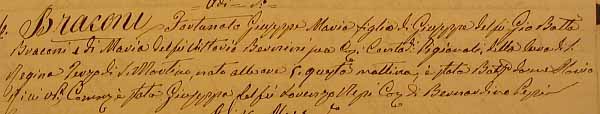 Braconi Fortunata Giuseppa Maria figlia di Giuseppe del fu Gio Batta
Braconi e di Maria del fu Ottavio Severini sua Cgi Contad: Pigionali, della Cura di S.
Regina Terzo di S. Martino, nata alle ore 5 questa mattina, è stata Batt da me
Com: è stata Giuseppa del fu Lorenzo Nepi Cog di Bernardino